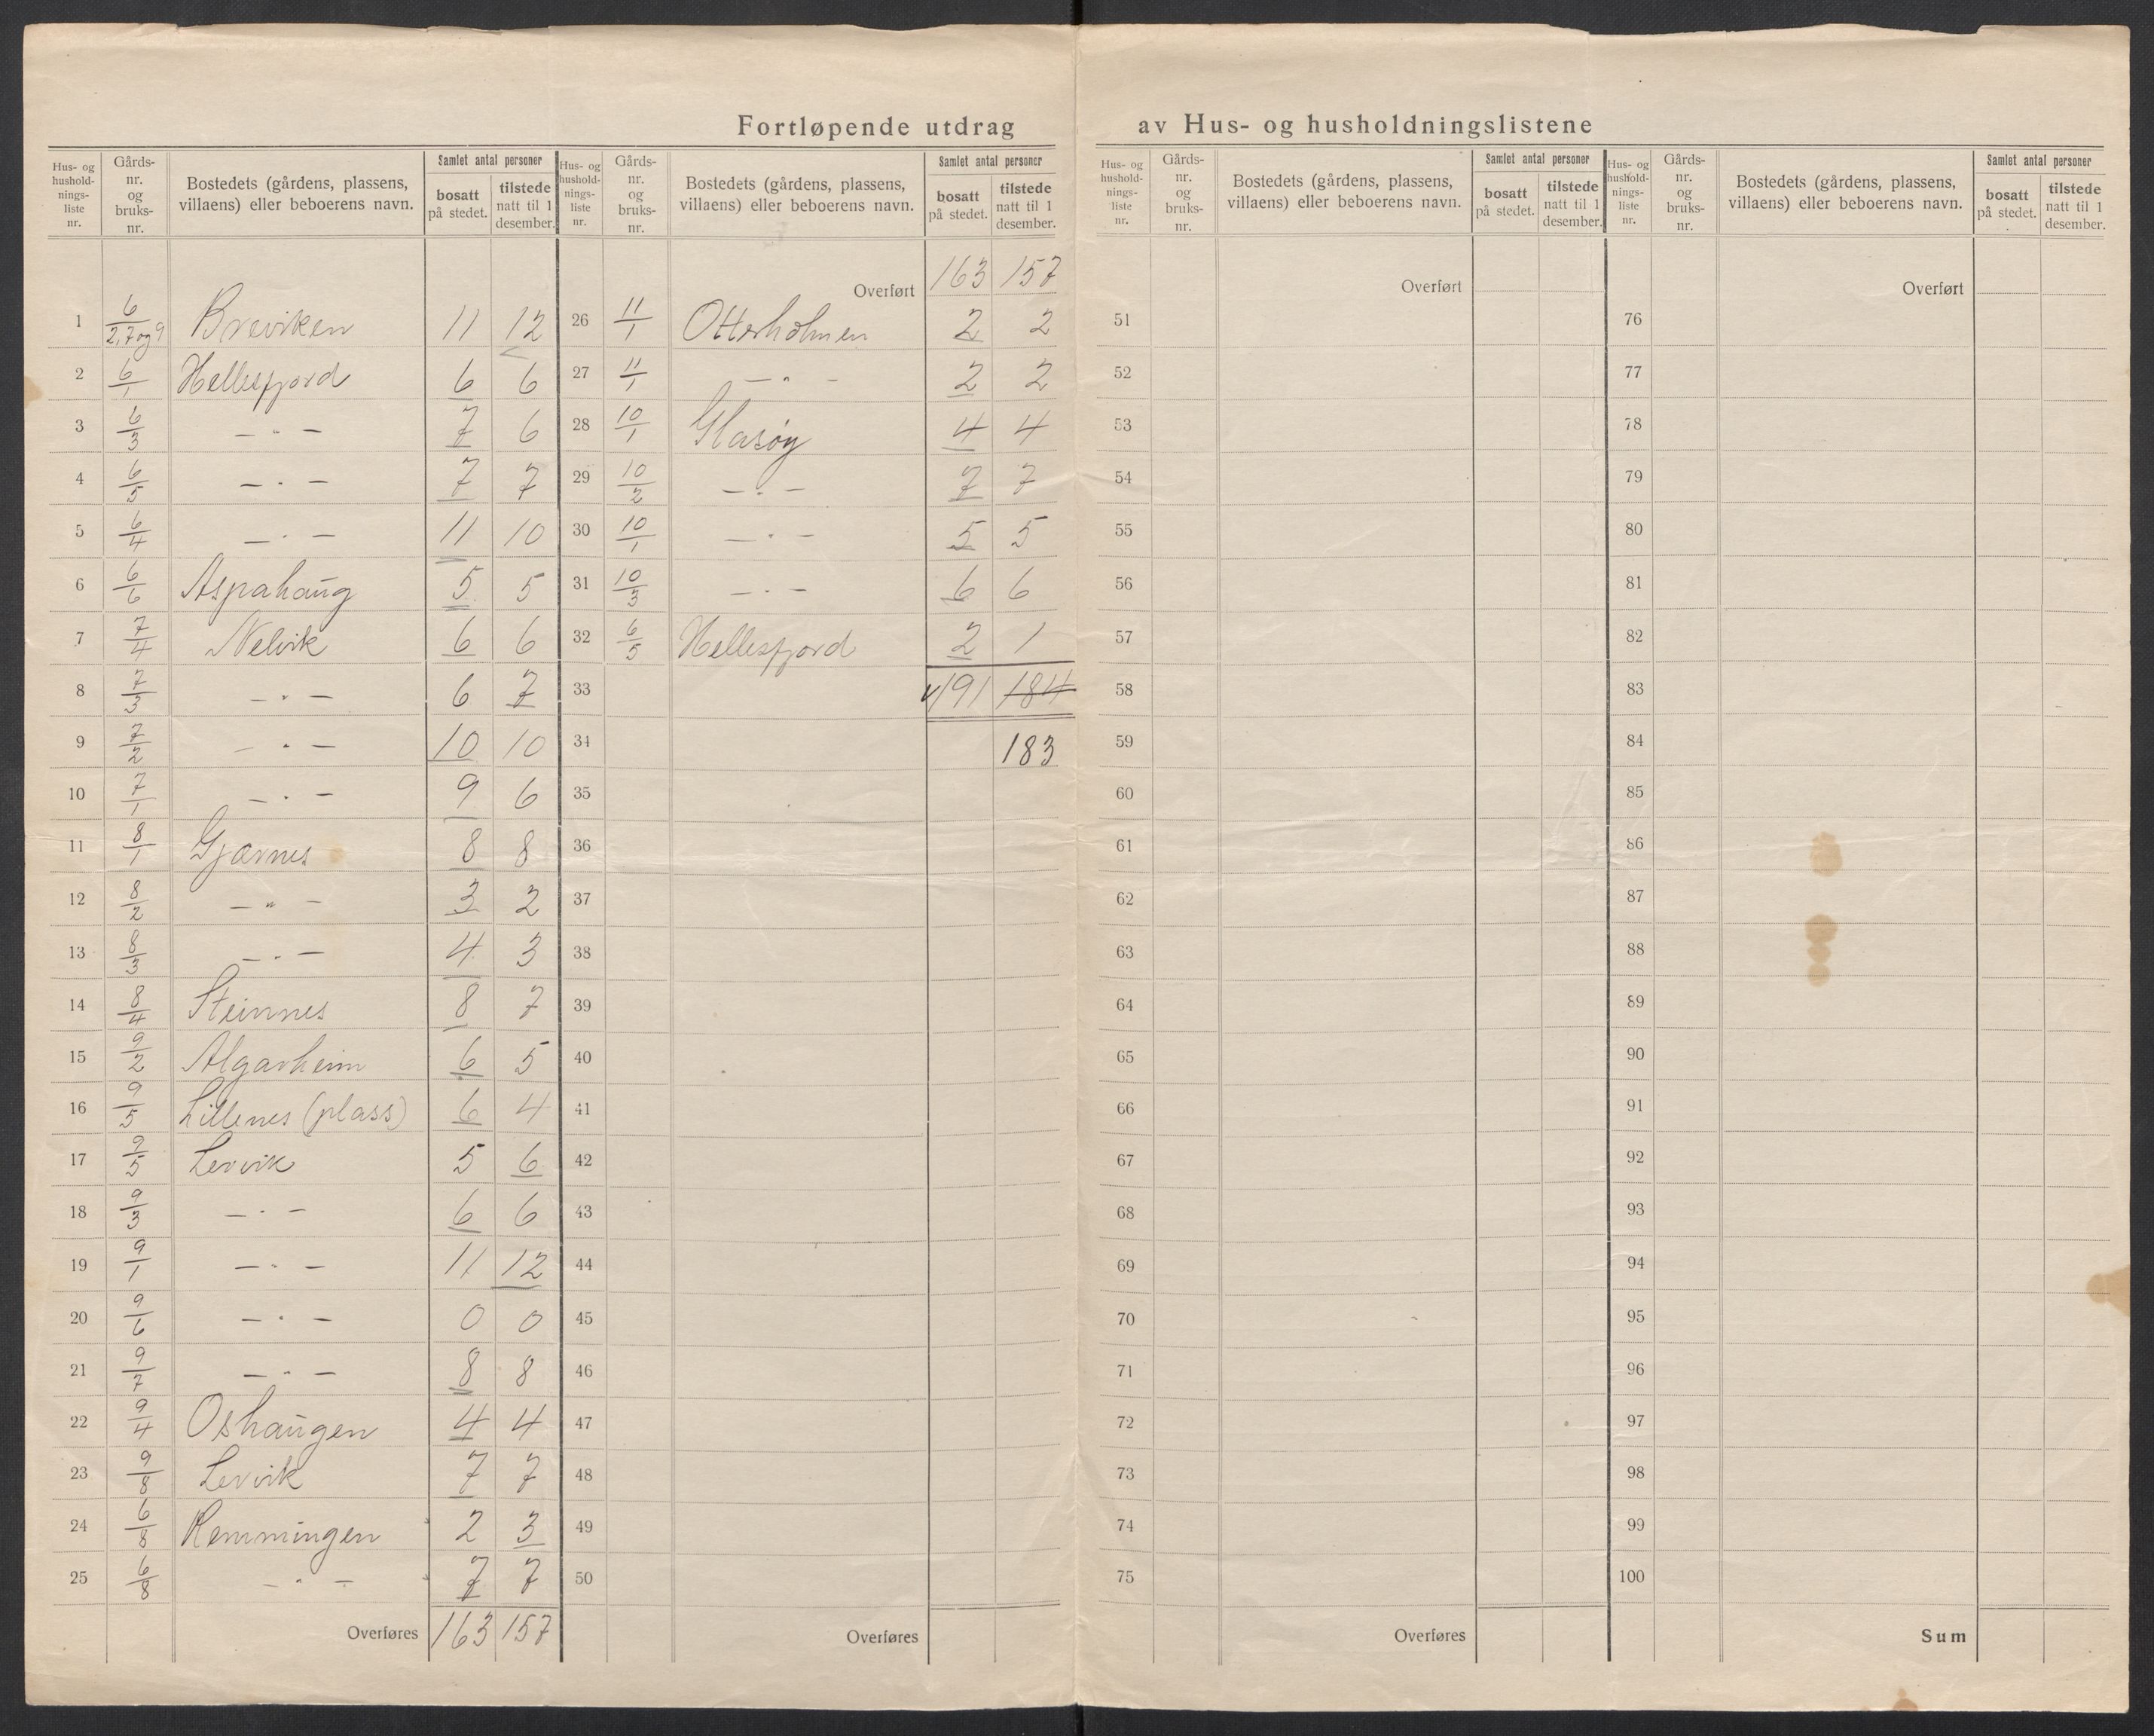 Fortløpende utdrag av Hus- og husholdningslistene
Hus- og hushold-nings-liste nr. | Gårds-nr. og bruks-nr. | Bostedets (gårdens, plassens, villaens) eller beboerens navn. | Samlet antal personer bosatt på stedet. | tilstede natt til 1 desember.
1 6/2,7 og 9 Breviken 11 12
2 6/1 Hellesfjord 6 6
3 6/3 — " — 7 6
4 6/5 — " — 7 7
5 6/4 — " — 11 10
6 6/6 Aspahaug 5 5
7 7/4 Nelvik 6 6
8 7/3 — " — 6 7
9 7/2 — " — 10 10
10 7/1 — " — 9 6
11 8/1 Gjærnes 8 8
12 8/2 — " — 3 2
13 8/3 — " — 4 3
14 8/4 Steinnes 8 7
15 9/2 Algarheim 6 5
16 9/5 Lillenes (plass) 6 4
17 9/5 Lervik 5 6
18 9/3 — " — 6 6
19 9/1 — " — 11 12
20 9/6 — " — 0 0
21 9/7 — " — 8 8
22 9/4 Oshaugen 4 4
23 9/8 Lervik 7 7
24 6/8 Hemmingen 2 3
25 6/8 — " — 7 7
Overføres 163 157
Hus- og hushold-nings-liste nr. | Gårds-nr. og bruks-nr. | Bostedets (gårdens, plassens, villaens) eller beboerens navn. | Samlet antal personer bosatt på stedet. | tilstede natt til 1 desember.
Overført 163 157
26 11/1 Otterholmen 2 2
27 11/1 — " — 2 2
28 10/1 Glasøy 4 4
29 10/2 — " — 7 7
30 10/1 — " — 5 5
31 10/3 — " — 6 6
32 6/5 Hellesfjord 2 1
33 191 184
34 183
35
36
37
38
39
40
41
42
43
44
45
46
47
48
49
50
Overføres
Hus- og hushold-nings-liste nr. | Gårds-nr. og bruks-nr. | Bostedets (gårdens, plassens, villaens) eller beboerens navn. | Samlet antal personer bosatt på stedet. | tilstede natt til 1 desember.
Overført
51
52
53
54
55
56
57
58
59
60
61
62
63
64
65
66
67
68
69
70
71
72
73
74
75
Overføres
Hus- og hushold-nings-liste nr. | Gårds-nr. og bruks-nr. | Bostedets (gårdens, plassens, villaens) eller beboerens navn. | Samlet antal personer bosatt på stedet. | tilstede natt til 1 desember.
Overført
76
77
78
79
80
81
82
83
84
85
86
87
88
89
90
91
92
93
94
95
96
97
98
99
100
Sum